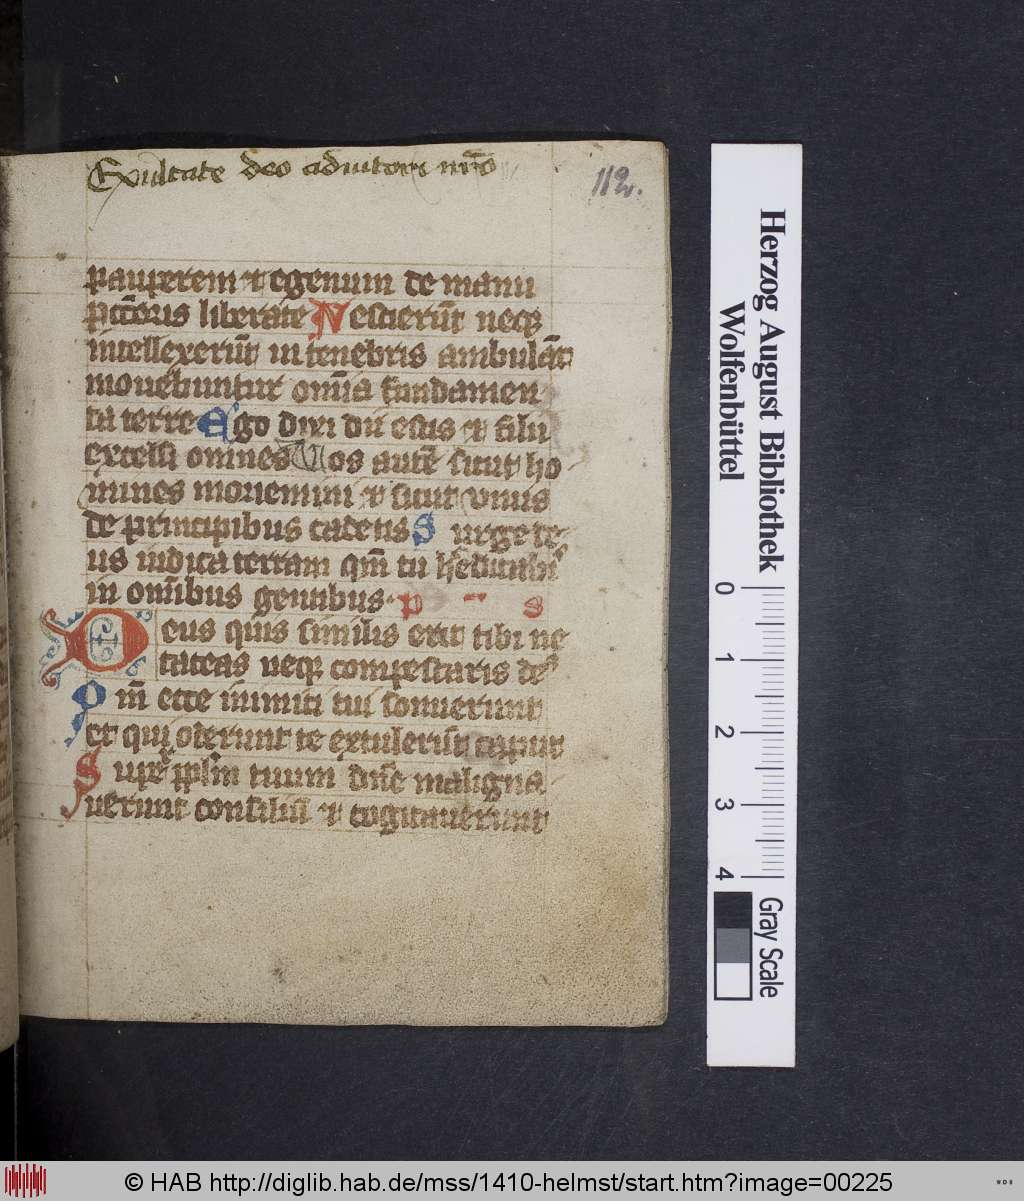 Exultate deo adiutori nr̄o
112.
pauperem et egenum de manu
pcc̄oris liberate Nescierūt neqꝫ
intellexerūt in tenebris ambulāt
mouebuntur om̄ia fundamen
ta terre Ego dixi dii estis et filii
excelsi omnes Uos autē sicut ho
mines moriemini et sicut vnus
de principibus cadetis Surge de
us iudica terram qm̄ tu
in om̄ibus gentibus. p s
Deus quis similis erit tibi ne
taceas neqꝫ compescaris deꝰ
Qm̄ ecce inimici tui sonuerunt
et qui oderunt te extulerūt caput
Supeꝛ pplm̄ tuum dn̄e maligna
uerunt consiliū et cogitauerunt
Herzog August Bibliothek
Wolfenbüttel
0 1 2 3 4
Gray Scale
© HAB http://diglib.hab.de/mss/1410-helmst/start.htm?image=00225